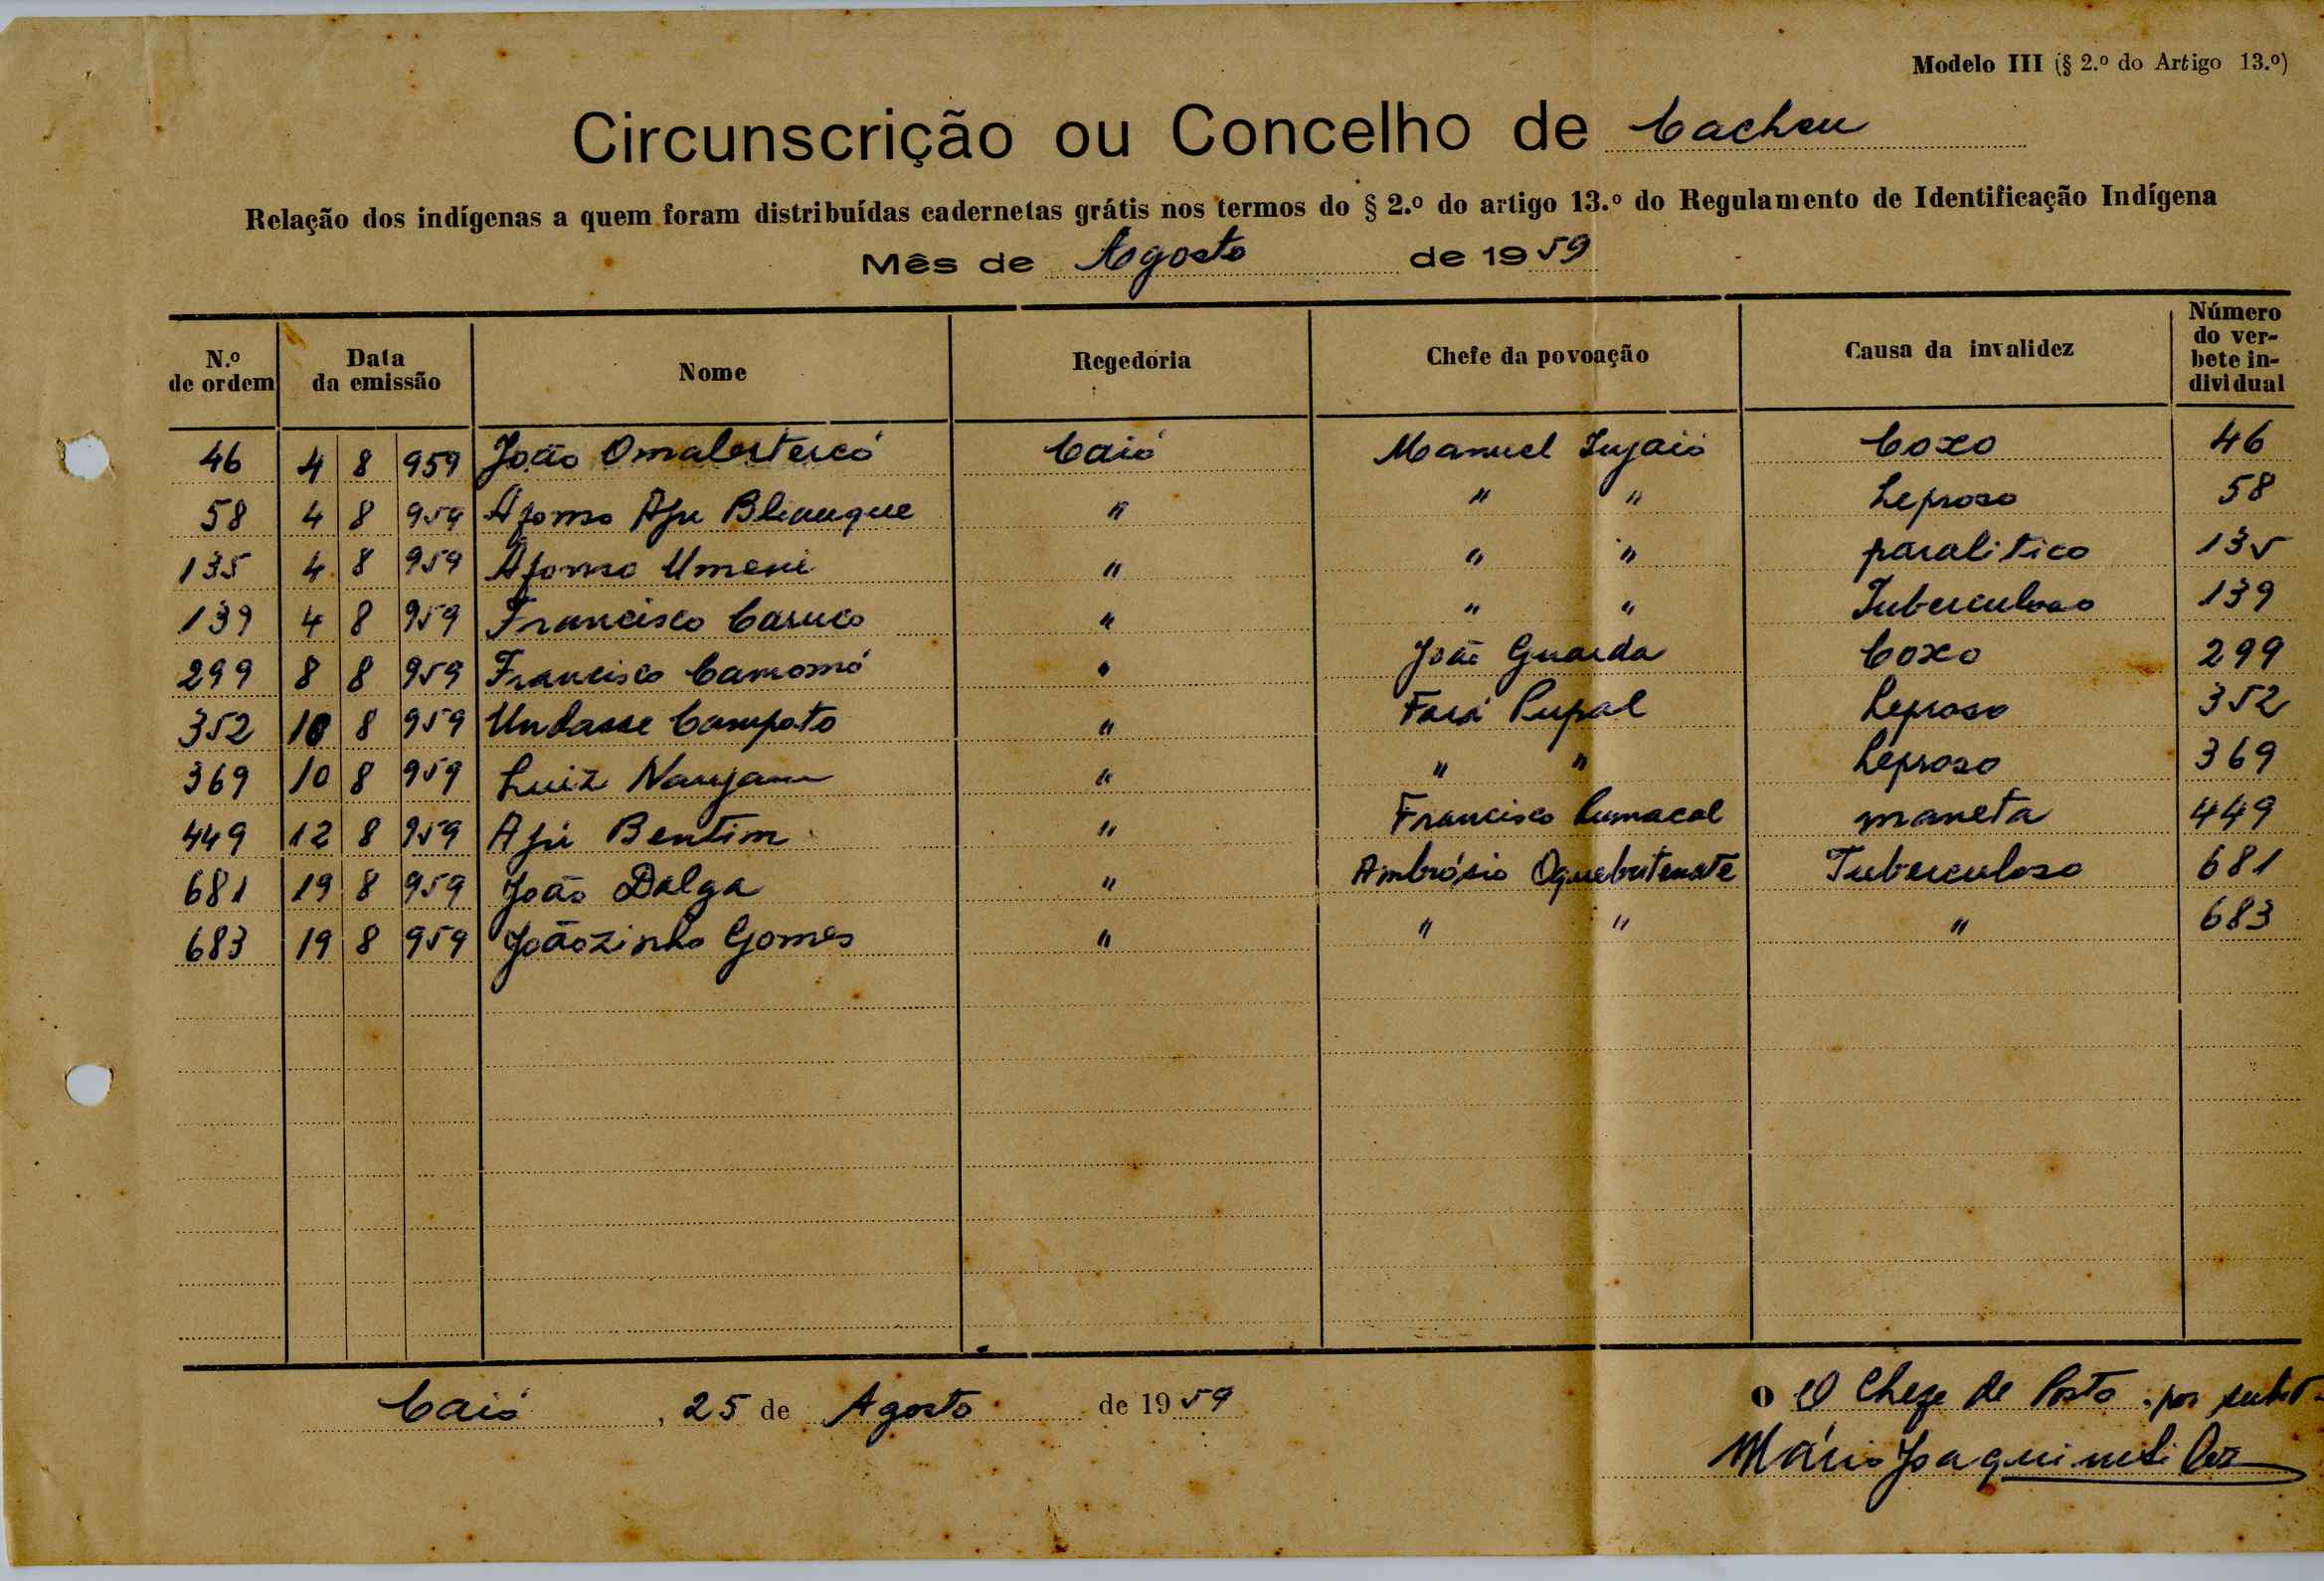 Modelo III (§ 2.º do Artigo 13.º)
Circunscrição ou Concelho de Cacheu
Relação dos indígenas a quem foram distribuídas cadernetas grátis nos termos do § 2.º do artigo 13.º do Regulamento de Identificação Indígena
Mês de Agosto de 1959
N.º de ordem Data da emissão Nome Regedoria Chefe da povoação Causa da invalidez Número do verbete individual
46 4 8 959 João Caió Manuel Coxo 46
58 4 8 959 Afonso Afu " " " Leproso 58
135 4 8 959 Afonso Umeni " " " paralitico 135
139 4 8 959 Francisco Caruco " " " Tuberculoso 139
299 8 8 959 Francisco Camomó " João Guarda Coxo 299
352 10 8 959 Undasse Campoto " Pupal Leproso 352
369 10 8 959 Luiz " " " Leproso 369
449 12 8 959 Afú Bentim " Francisco maneta 449
681 19 8 959 João Dalga " Ambrósio Tuberculoso 681
683 19 8 959 Joãozinho Gomes " " " " 683
Caió, 25 de Agosto de 1959
O O Chefe de Posto, por subst.
Mário Joaquim